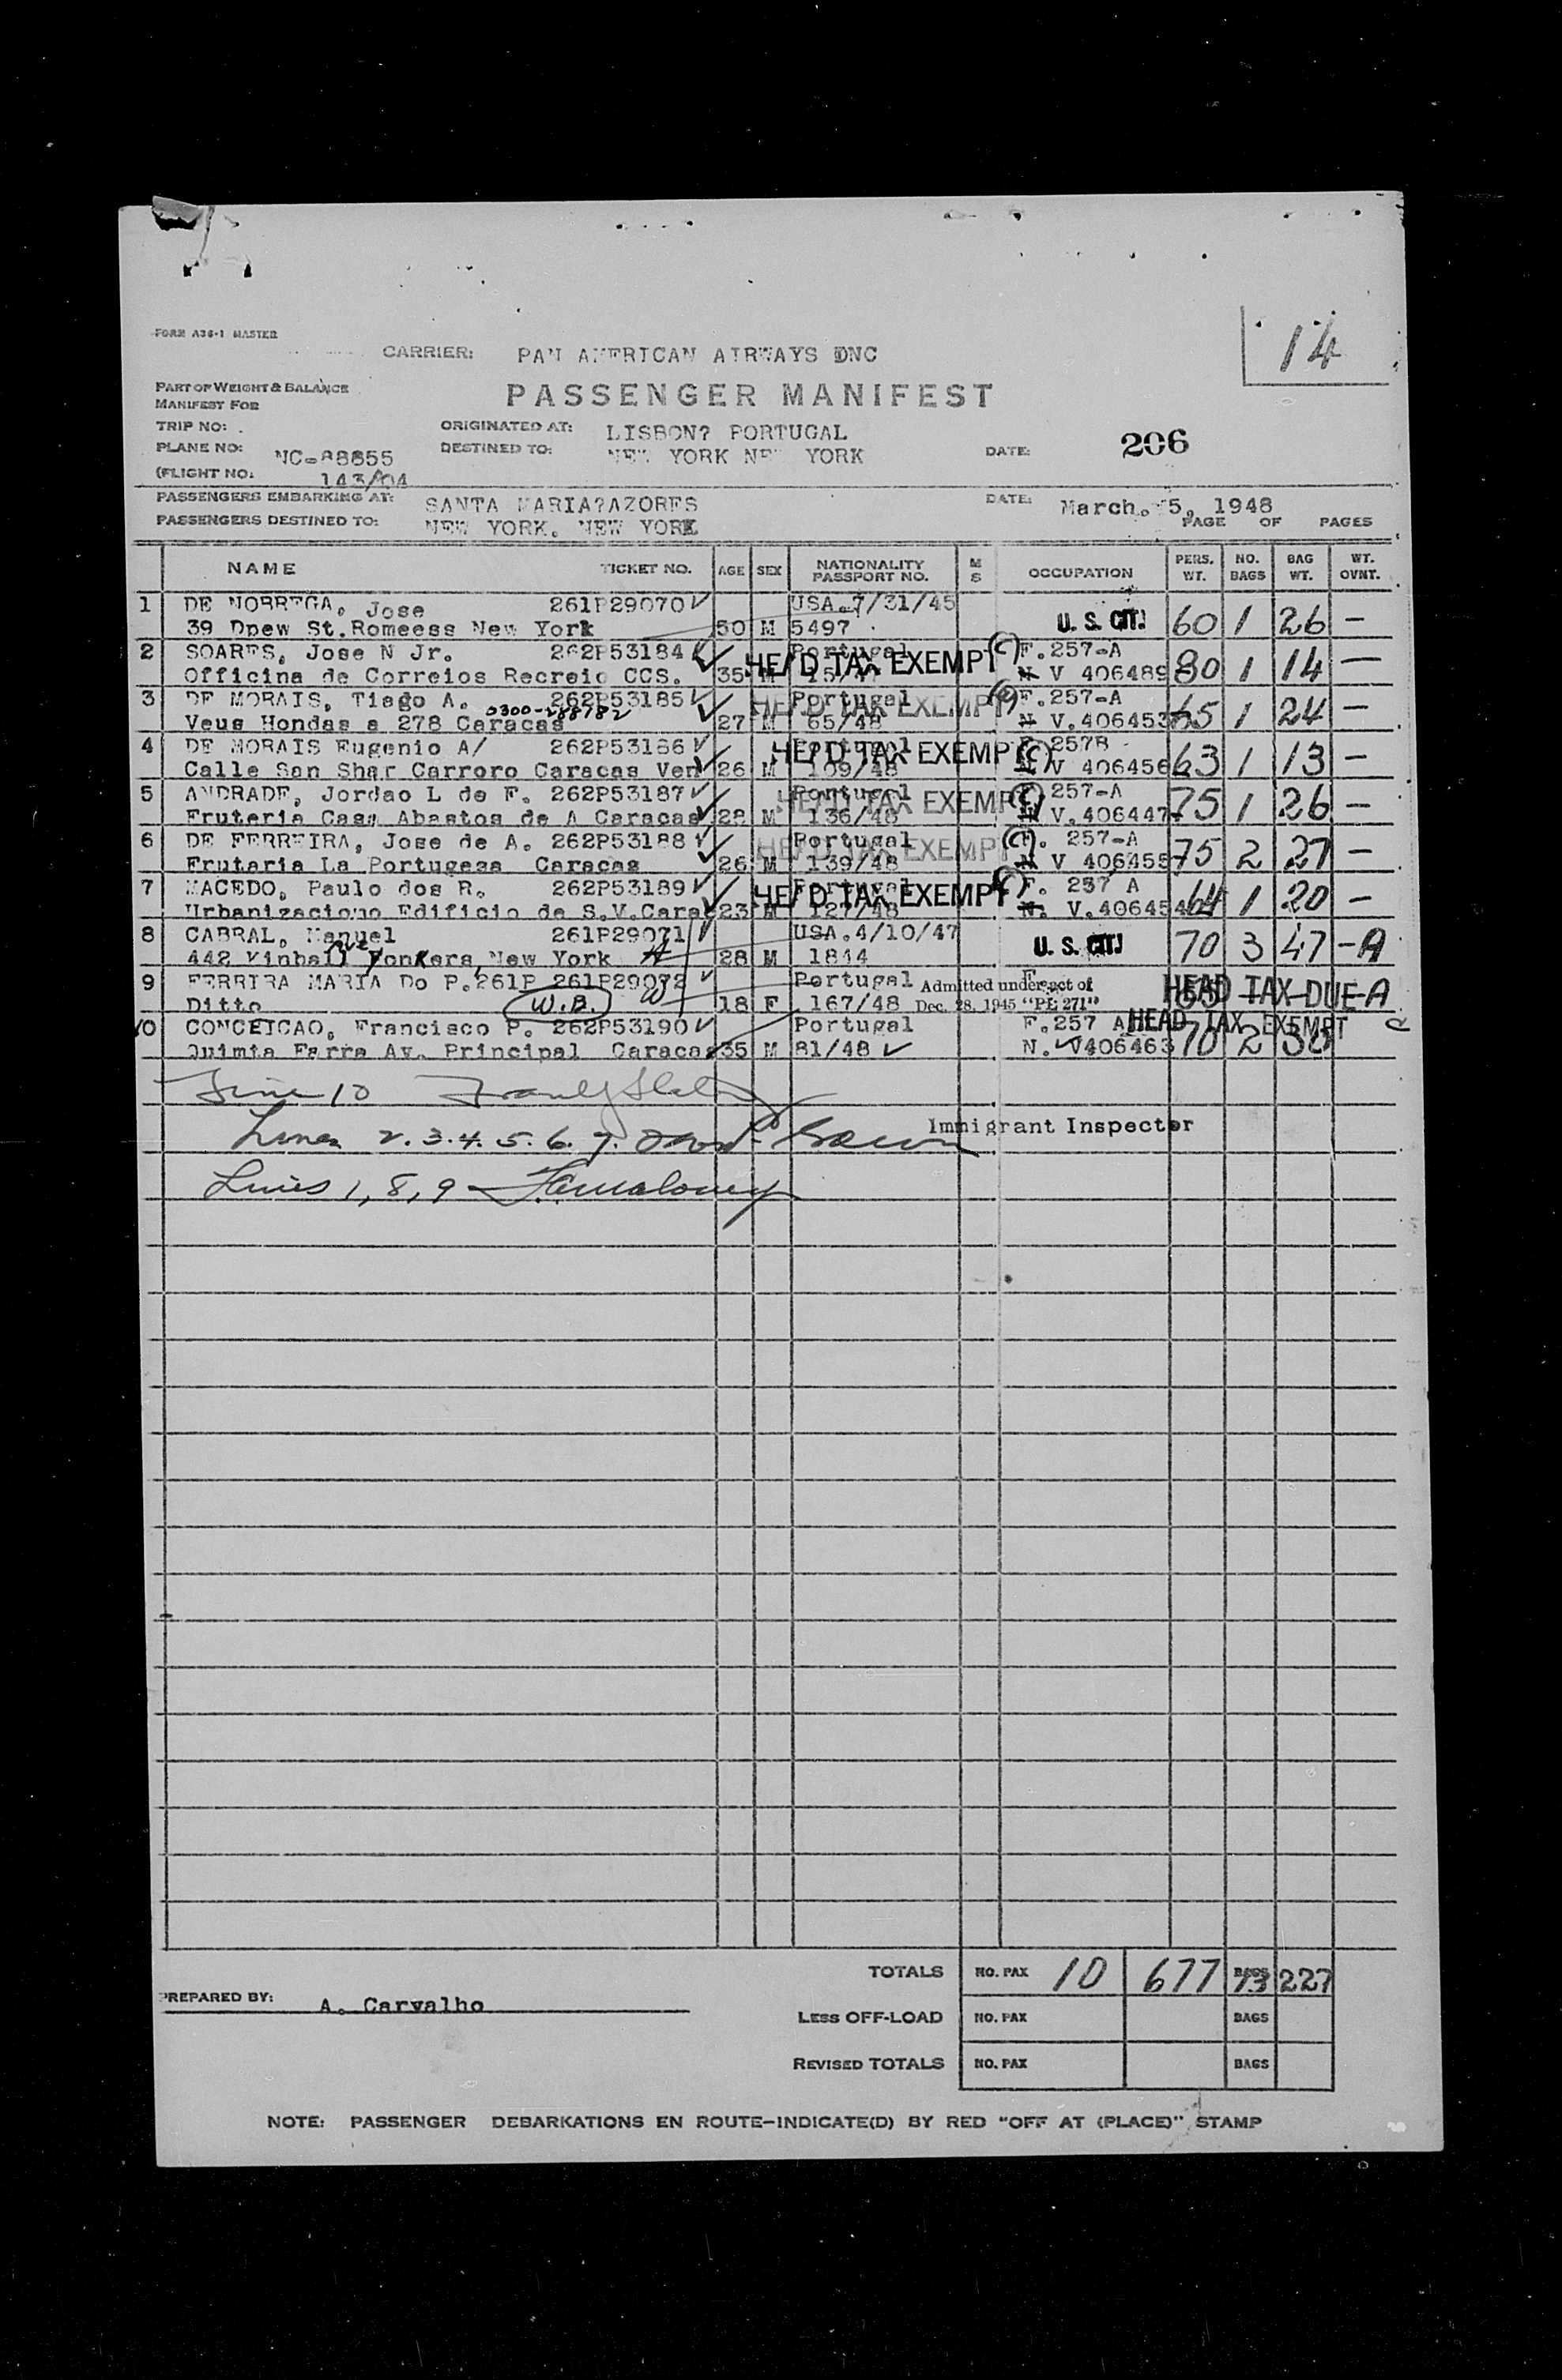 14
FORM A36-1 MASTER
CARRIER: PAN AMERICAN AIRWAYS DNC
PART OF WEIGHT & BALANCE
MANIFEST FOR
PASSENGER MANIFEST
TRIP NO:
ORIGINATED AT: LISBON? PORTUGAL
PLANE NO: NC-88855
DESTINED TO: NEW YORK NEW YORK
DATE: 206
(FLIGHT NO: 143/04
PASSENGERS EMBARKING AT: SANTA MARIA?AZORES
DATE: March. 5, 1948
PASSENGERS DESTINED TO: NEW YORK. NEW YORK
PAGE OF PAGES
NAME TICKET NO. AGE SEX NATIONALITY PASSPORT NO. M S OCCUPATION PERS. WT. NO. BAGS BAG WT. WT. OVNT.
1 DE NOBREGA, Jose 261P29070 USA.7/31/45
39 Dpew St.Romeess New York 50 M 5497 U. S. CIT. 60 1 26 —
2 SOARES, Jose N Jr. 262P53184 Portugal F.257-A
Officina de Correios Recreio CCS. 35 M HEAD TAX EXEMPT N V 406489 80 1 14 —
3 DE MORAIS, Tiago A. 262P53185 Portugal F.257-A
0300-288782
Veus Hondas a 278 Caracas 27 M 65/48 HEAD TAX EXEMPT N V.406453 65 1 24 —
4 DE MORAIS Eugenio A/ 262P53186 Portugal F 257B
Calle San Shar Carroro Caracas Ven 26 M 109/48 HEAD TAX EXEMPT N V 406456 63 1 13 —
5 ANDRADE, Jordao L de F. 262P53187 Portugal F 257-A
Fruteria Casa Abastos de A Caracas 28 M 136/48 HEAD TAX EXEMPT N V.406447 75 1 26 —
6 DE FERREIRA, Jose de A. 262P53188 Portugal F. 257-A
Frutaria La Portugesa Caracas 26 M 139/48 HEAD TAX EXEMPT N V 406455 75 2 27 —
7 MACEDO, Paulo dos R. 262P53189 Portugal F. 257 A
Urbanizaciono Edificio de S.V.Carac 23 M 127/48 HEAD TAX EXEMPT N. V.406454 64 1 20 —
8 CABRAL, Manuel 261P29071 USA.4/10/47
442 Kinball Ave, Yonkers, New York 28 M 1844 U. S. CIT. 70 3 47 - A
9 FERRIRA MARIA Do P.261P 261P29072 Portugal Admitted under act of F. HEAD TAX DUE A
Ditto W.B. W 18 F 167/48 Dec. 28, 1945 "PL 271"
10 CONCEICAO, Francisco P. 262P53190 Portugal F.257 A HEAD TAX EXEMPT
Quimia Farra Av. Principal Caracas 35 M 81/48 N. V406463 70 2 30
Line 10
Lines 2.3.4.5.6.7. Immigrant Inspector
Lines 1, 8, 9
TOTALS NO. PAX 10 677 BAGS 13 227
PREPARED BY: A. Carvalho
LESS OFF-LOAD NO. PAX BAGS
REVISED TOTALS NO. PAX BAGS
NOTE: PASSENGER DEBARKATIONS EN ROUTE-INDICATE(D) BY RED "OFF AT (PLACE)" STAMP